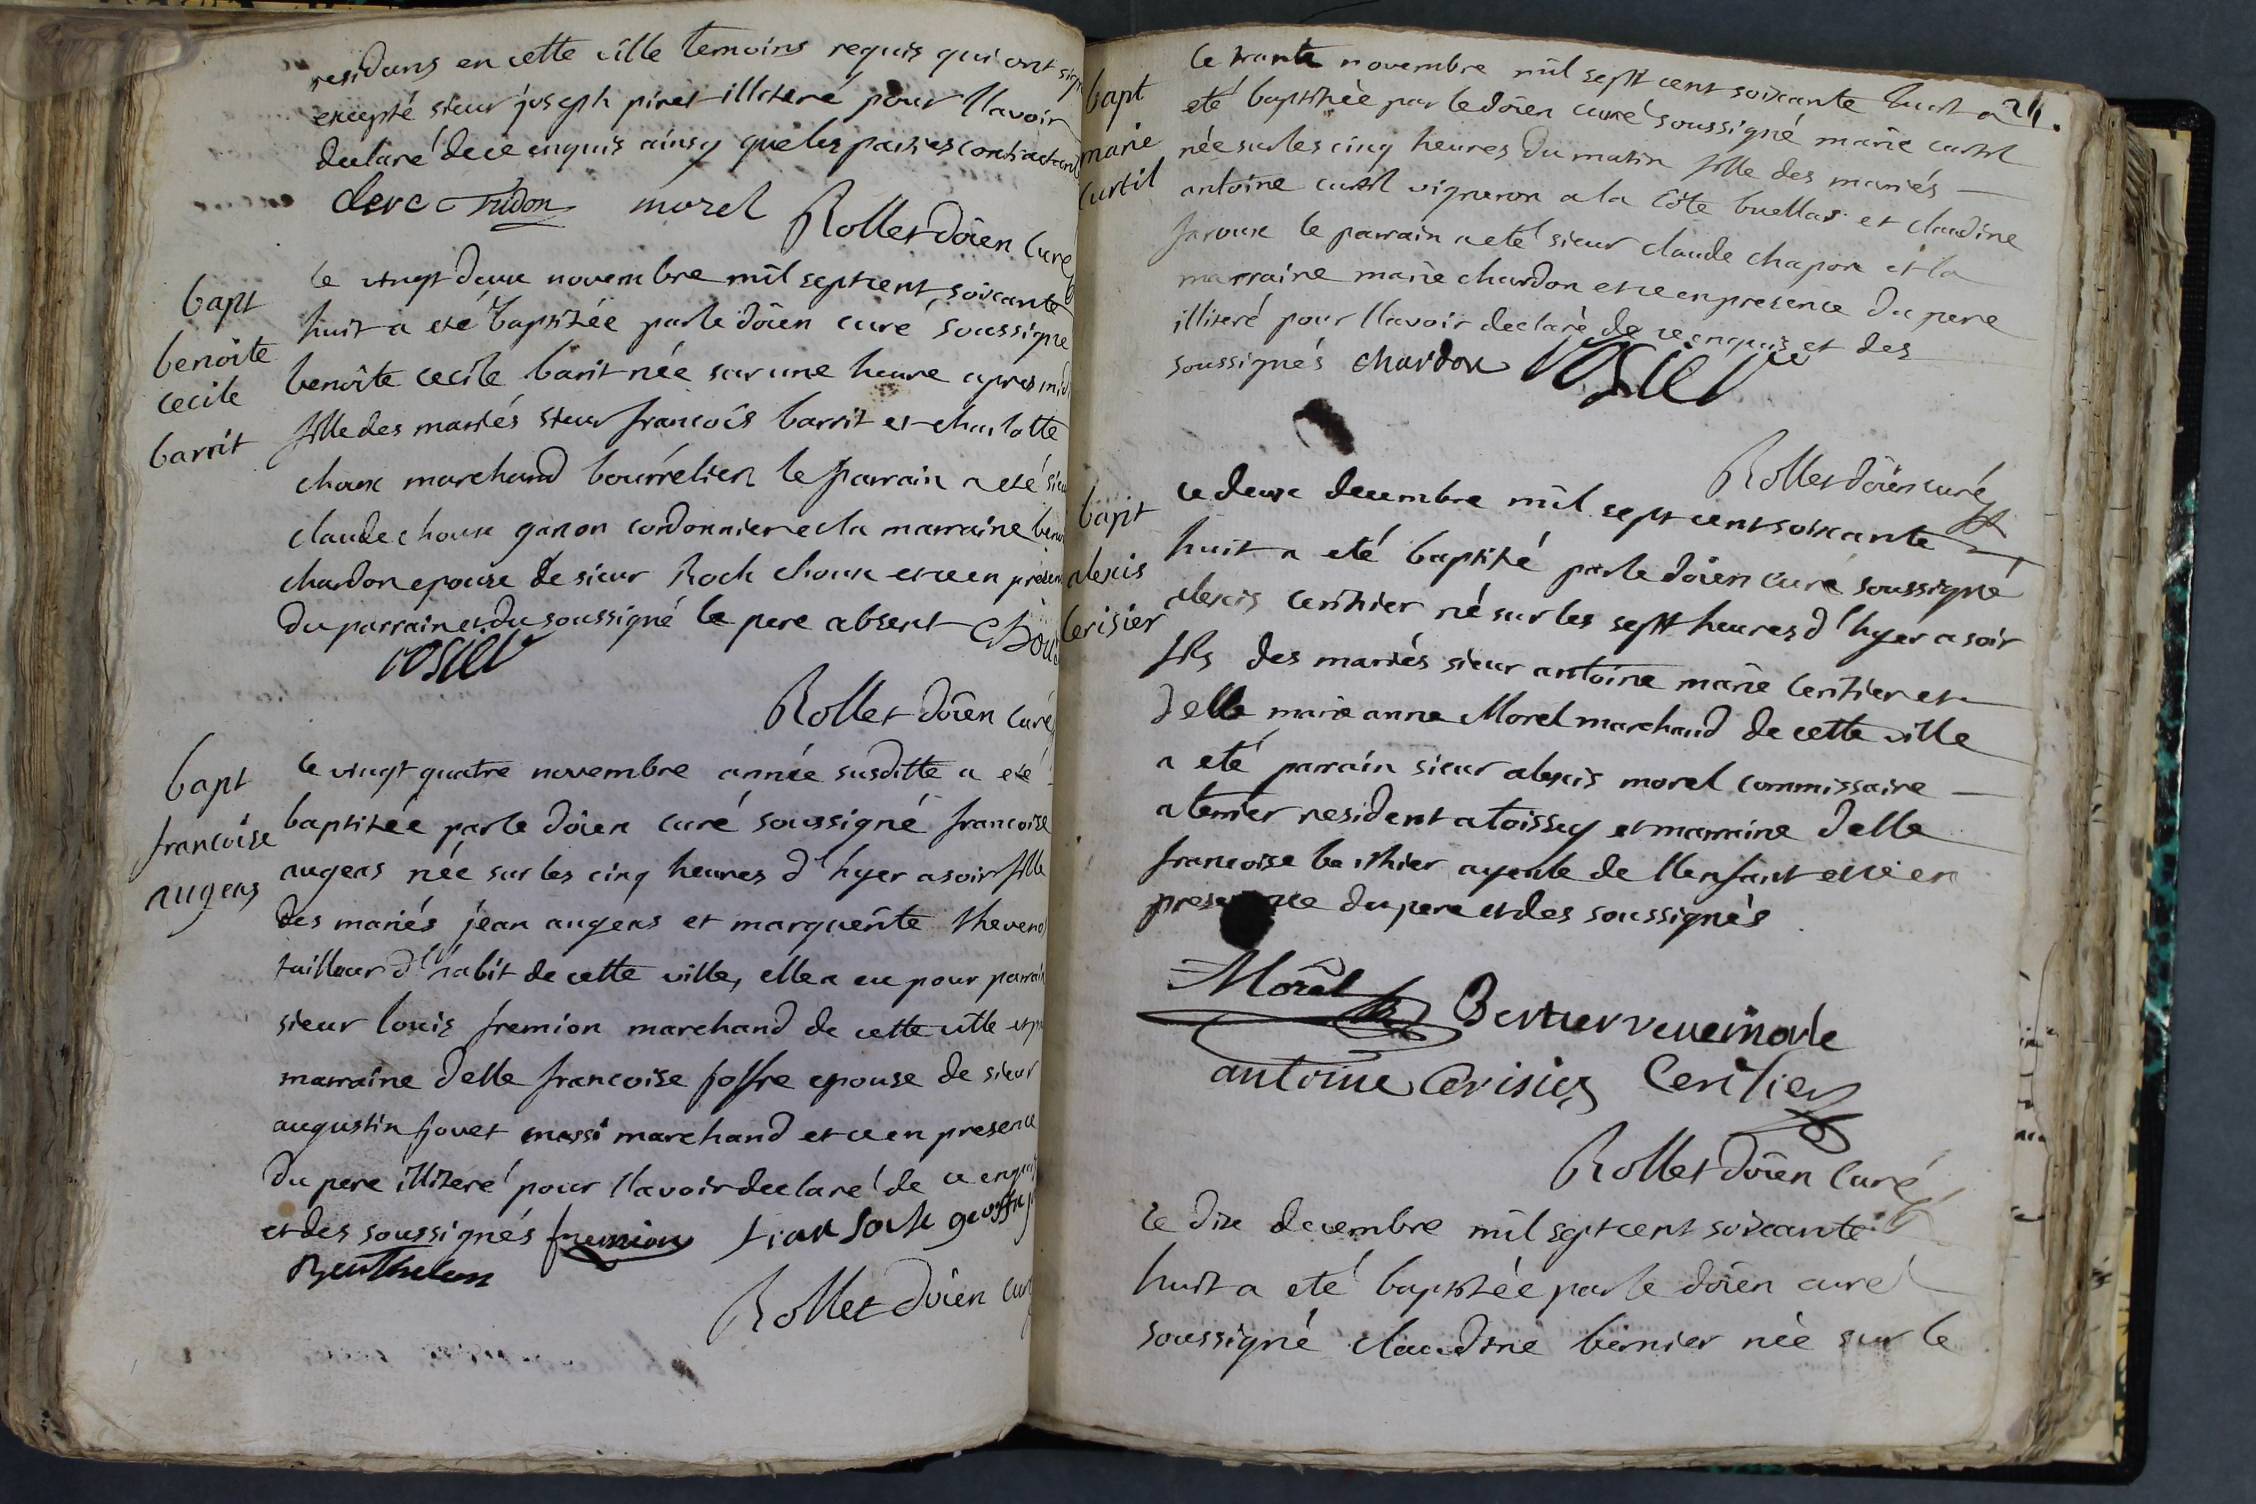 residans en cette ville temoins requis qui ont
excepté sieur joseph piret illiteré pour l'lavoir
declaré de ce enquis ainsy que les parties contractant
clerc Tridon morel
Rollet doïen curé
bapt
benoite
cecile
barrit
le vingt deux novembre mil sept cent soixante
huit a eté baptizée par le doïen curé soussigne
benoîte cecile barit née sur une heure apres mid
fille des mariés sieur francoîs barrit et charlotte
choux marchand bourrélier le parrain a eté sieu
claude choux garçon cordonnier et la marraine
chardon epouse de sieur Roch choux et ce en presen
du parrain et du soussigné le pere absent
rosier
Rollet doïen curé
bapt
francoise
augeras
le vingt quatre novembre année susditte a eté
baptizée par le doïen curé soussigné francoise
augeras née sur les cinq heures d'hyer a soir fille
des mariés jean augeras et marguerite
tailleur d'habit de cette ville, elle a eu pour parrain
sieur louis fremion marchand de cette ville
marraine delle francoise joffre epouse de sieur
augustin jovet aussi marchand et ce en presence
du pere illiteré pour l'lavoir declaré de ce enquis
et des soussignés fremion
Rollet doïen cur
24.
bapt
marie
curtil
le trante novembre mil sept cent soixante huit a
eté baptizée par le doïen curé soussigné marie curtil
née sur les cinq heures du matin fille des mariés
antoine curtil vigneron a la côte buellas et claudine
jaroux le parrain a eté sieur claude chapon et la
marraine marie chardon et ce en presence du pere
illiteré pour l'lavoir declaré de ce enquis et des
soussignés chardon rosier
Rollet doïen curé
bapt
alexis
cerisier
le deux decembre mil sept cent soixante
huit a eté baptizé par le doïen curé soussigné
alexis cerizier né sur les sept heures d'hyer a soir
fils des mariés sieur antoine marie cerizier et
delle marie anne Morel marchand de cette ville
a eté parrain sieur alexis morel commissaire
a terrier resident a toissey et marraine delle
francoise berthier ayeule de l'lenfant et ce en
presence du pere et des soussignés
Morel Bertier veuve morle
antoine Cerisier Cerizier
Rollet doïen curé
le dix decembre mil sept cent soixante
huit a eté baptizée par le doïen curé
soussigné claudine bernier née sur le